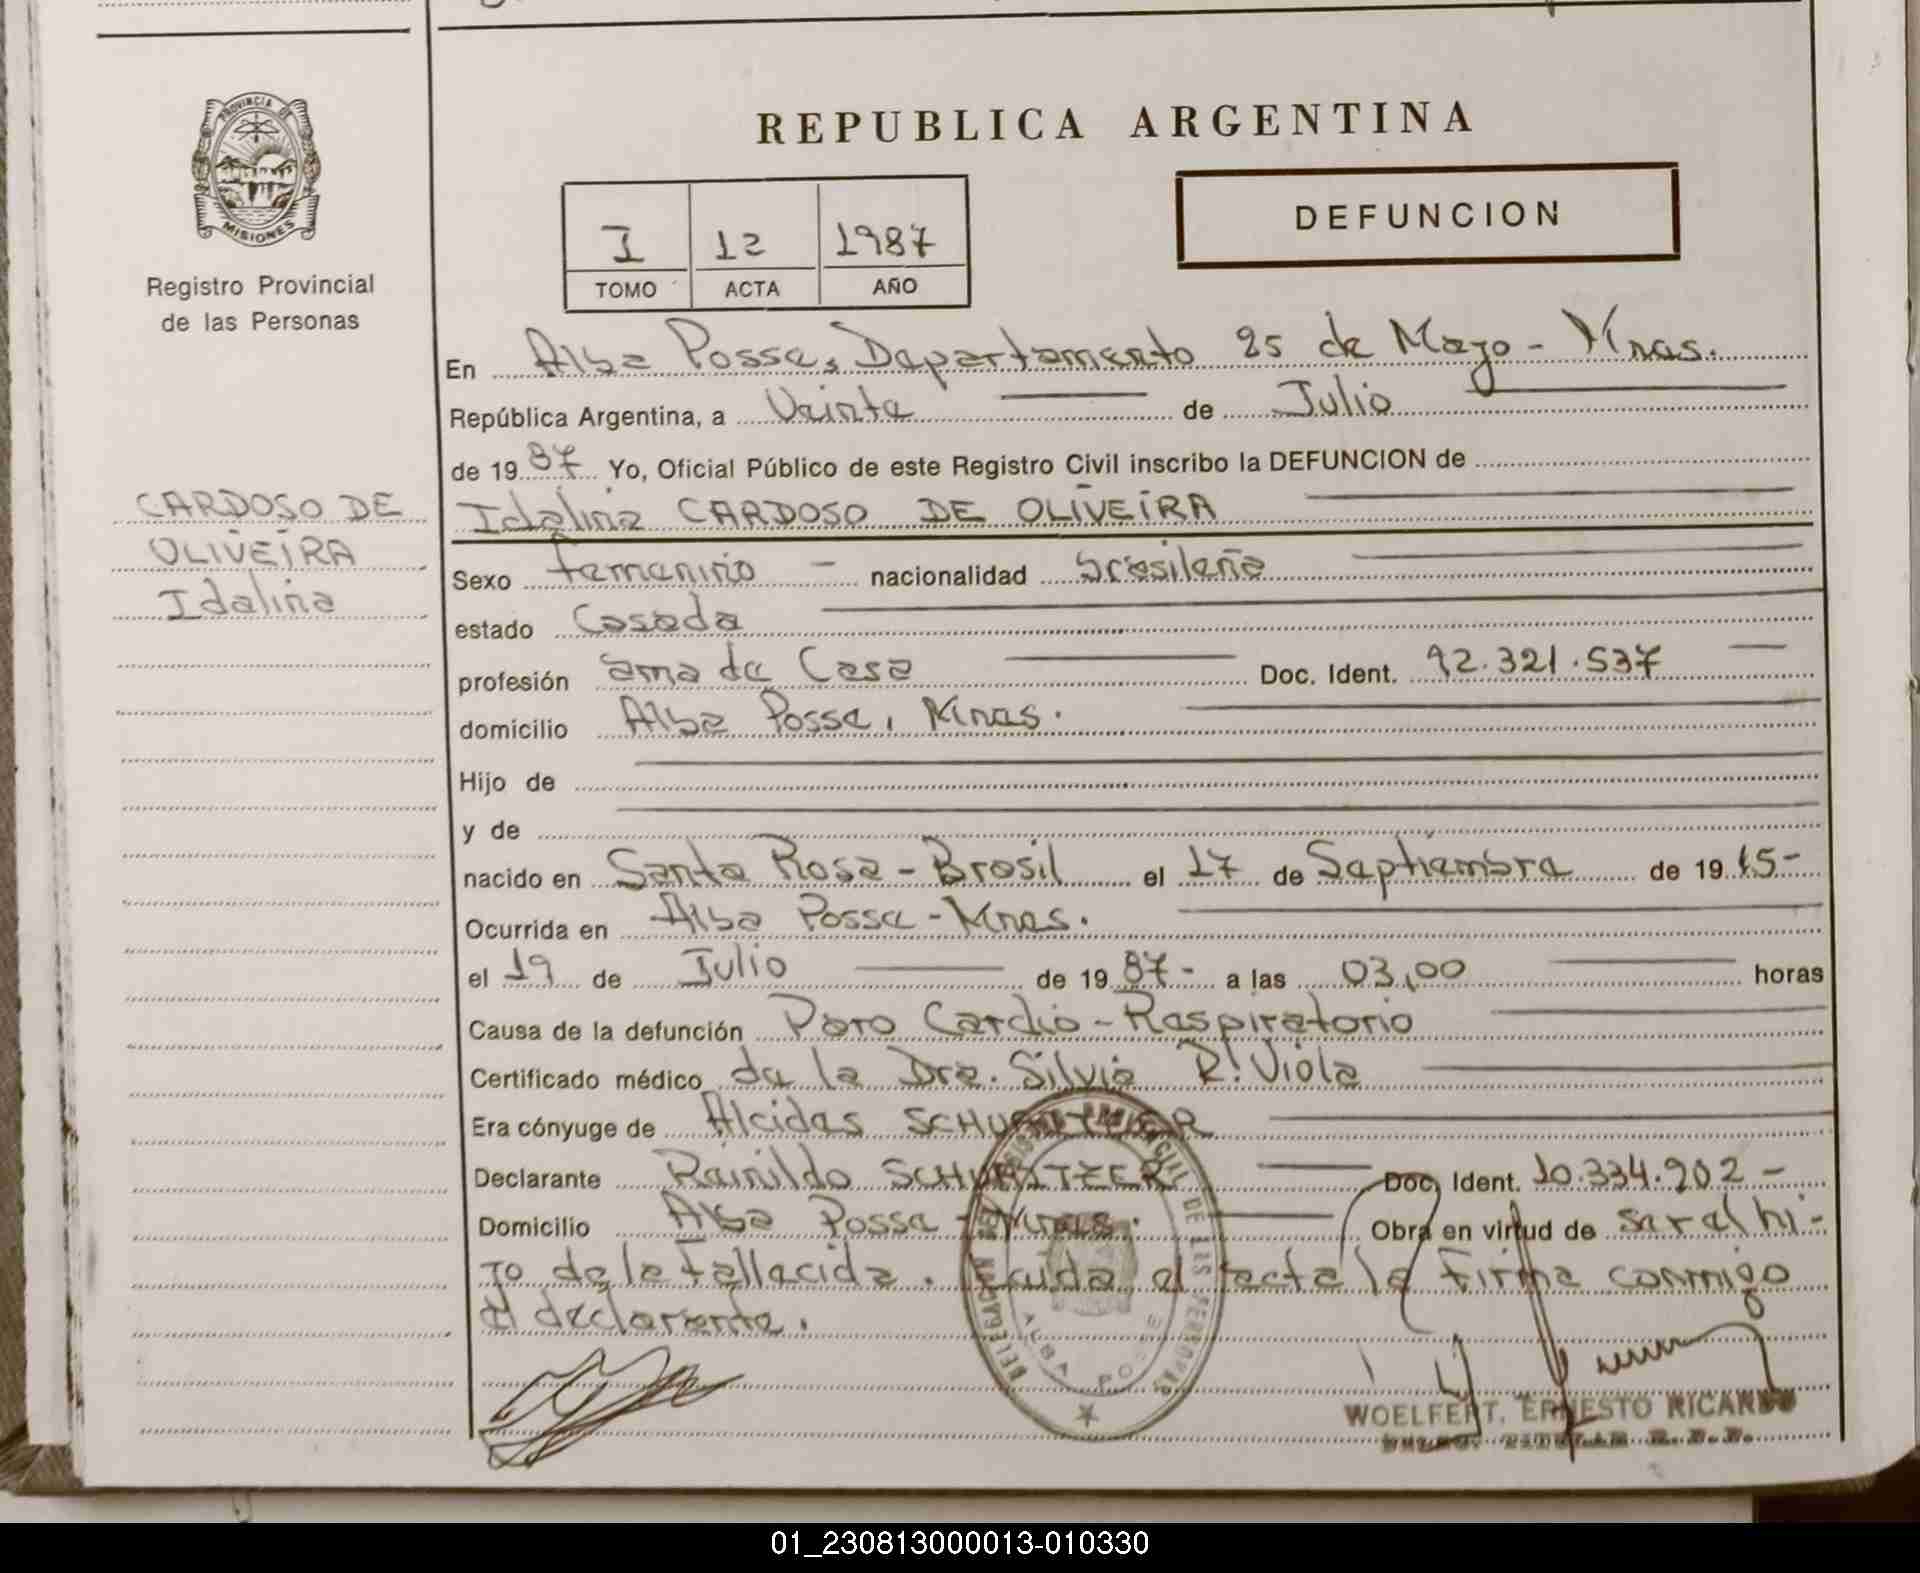 PROVINCIA DE
MISIONES
Registro Provincial
de las Personas
CARDOSO DE
OLIVEIRA
Idalina
REPUBLICA ARGENTINA
I 12 1987
TOMO ACTA AÑO
DEFUNCION
En Alba Posse, Departamento 25 de Mayo - Mnas.
República Argentina, a Veinte de Julio
de 1987 Yo, Oficial Público de este Registro Civil inscribo la DEFUNCION de
Idalina CARDOSO DE OLIVEIRA
Sexo femenino - nacionalidad brasileña
estado Casada
profesión ama de Casa Doc. Ident. 92.321.537
domicilio Alba Posse, Mnas.
Hijo de
y de
nacido en Santa Rosa - Brasil el 17 de Septiembre de 1915-
Ocurrida en Alba Posse - Mnas.
el 19 de Julio de 1987- a las 03,00 horas
Causa de la defunción Paro Cardio-Respiratorio
Certificado médico de la Dra. Silvia R. Viola
Era cónyuge de Alcides
Declarante Rainildo Doc. Ident. 10.334.902-
Domicilio Alba Posse - Mnas. Obra en virtud de ser el hi-
jo de la fallecida. Leida el acta la firma conmigo
el declarante.
ALBA POSSE
WOELFERT, ERNESTO RICARDO
01_230813000013-010330